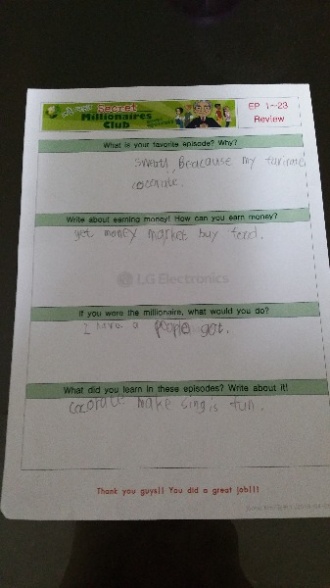 Secret
Millionaires
Club
EP 1~23
Review
What is your favorite episode? Why?
Beacause my
cocorate.
Write about earning money! How can you earn money?
get money market buy food.
LG Electronics
If you were the millionaire, what would you do?
I have a people get.
What did you learn in these episodes? Write about it!
cocorate make sing is fun.
Thank you guys!! You did a great job!!!